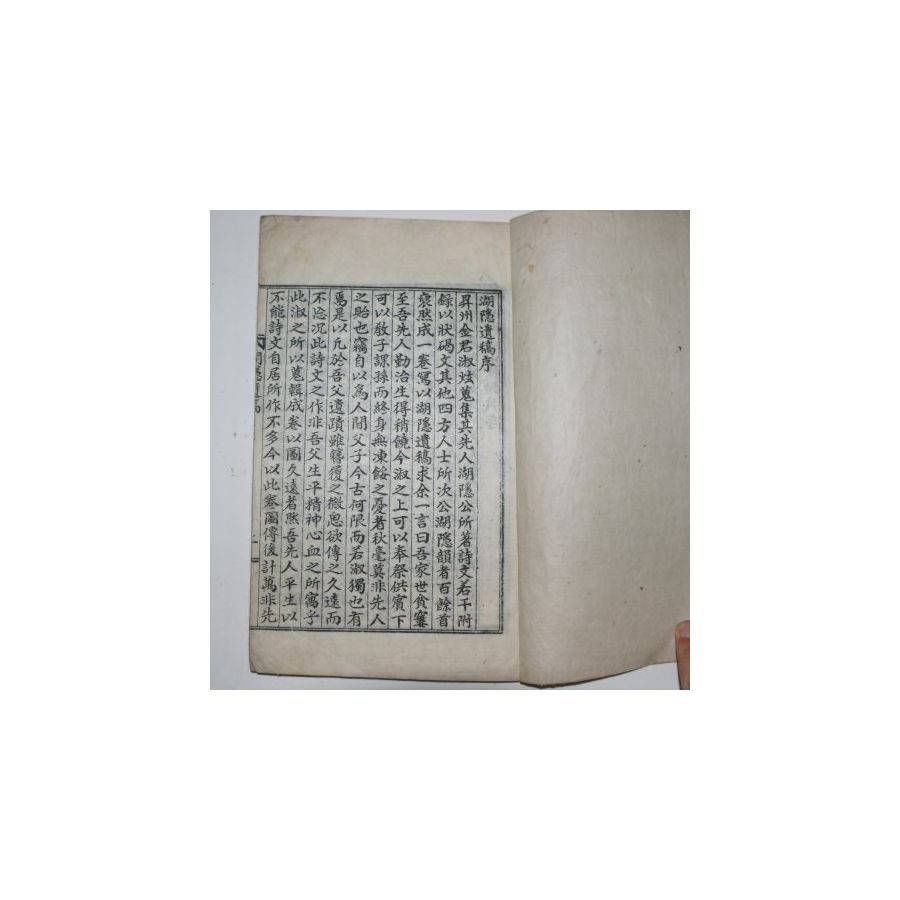 湖隱遺稿序
昇州金君淑炫蒐集其先人湖隱公所著詩文若干附
錄以狀碣文其他四方人士所次公湖隱韻者百餘首
裒然成一卷寫以湖隱遺稿求余一言曰吾家世貪窶
至吾先人勤治生得稍饒今淑之上可以奉祭供賓下
可以敎子課孫而終身無凍餒之憂者秋毫莫非先人
之貽也竊自以爲人間父子今古何限而若淑獨也有
焉是以凡於吾父遺蹟雖簪履之微思欲傳之久遠而
不忘况此詩文之作非吾父生平精神心血之所寓乎
此淑之所以蒐輯成卷以圖久遠者然吾先人平生以
不能詩文自居所作不多今以此卷圖傳後計萬非先
湖隱遺稿